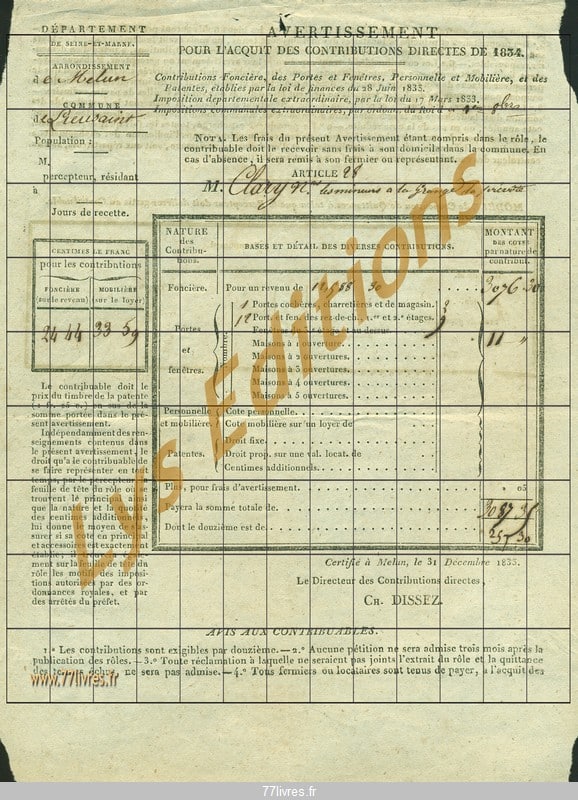 DÉPARTEMENT
DE SEINE-ET-MARNE.
ARRONDISSEMENT
de Melun
COMMUNE
de Lieusaint
Population :
M.
percepteur, résidant
à
Jours de recette.
AVERTISSEMENT
POUR L'ACQUIT DES CONTRIBUTIONS DIRECTES DE 1834.
Contributions Foncière, des Portes et Fenêtres, Personnelle et Mobilière, et des
Patentes, établies par la loi de finances du 28 Juin 1833.
Imposition départementale extraordinaire, par la loi du 17 Mars 1833.
Impositions communales extraordinaires, par ordonn. du Roi
NOTA. Les frais du présent Avertissement étant compris dans le rôle, le
contribuable doit le recevoir sans frais à son domicile dans la commune. En
cas d'absence, il sera remis à son fermier ou représentant.
ARTICLE 28
M. Clary les mineurs a la Grange
CENTIMES LE FRANC
pour les contributions
FONCIÈRE (sur le revenu)
MOBILIÈRE (sur le loyer)
24 44 33 59
Le contribuable doit le
prix du timbre de la patente
(1 fr. 25 c.) en sus de la
somme portée dans le pré-
sent avertissement.
Indépendamment des ren-
seignements contenus dans
le présent avertissement, le
droit qu'a le contribuable de
se faire représenter en
temps, par le percepteur, la
feuille de tête du rôle où se
trouvent le principal
que la nature et la
des centimes additionnels,
lui donne le moyen de s'as-
surer si sa cote en principal
et accessoires est exactement
établie.
sur la
rôle les motifs des impositions
autorisées par des or-
donnances royales, et par
des arrêtés du préfet.
NATURE des Contribu- tions.
BASES ET DÉTAIL DES DIVERSES CONTRIBUTIONS.
MONTANT DES COTES par nature de contribut.
Foncière. Pour un revenu de 30 3076 30
Portes et fenêtres.
Nombre
1 Portes cochères, charretières et de magasin.
12 Port. et fen. des rez-de-ch., 1.er et 2.e étages. 11 »
Fenêtres du 3.e étage et au dessus.
Maisons à 1 ouverture.
Maisons à 2 ouvertures.
Maisons à 3 ouvertures.
Maisons à 4 ouvertures.
Maisons à 5 ouvertures.
Personnelle et mobilière.
Cote personnelle.
Cote mobilière sur un loyer de
Patentes.
Droit fixe.
Droit prop. sur une val. locat. de
Centimes additionnels.
Plus, pour frais d'avertissement. » 05
Payera la somme totale de. 3087 35
Dont le douzième est de. 257 30
Certifié à Melun, le 31 Décembre 1833.
Le Directeur des Contributions directes,
CH. DISSEZ.
AVIS AUX CONTRIBUABLES.
1.º Les contributions sont exigibles par douzième. — 2.º Aucune pétition ne sera admise trois mois après la
publication des rôles. — 3.º Toute réclamation à laquelle ne seraient pas joints l'extrait du rôle et la quittance
des termes échus, ne sera pas admise. — 4.º Tous fermiers ou locataires sont tenus de payer, à l'acquit des
Lys Editions
www.77livres.fr
77livres.fr